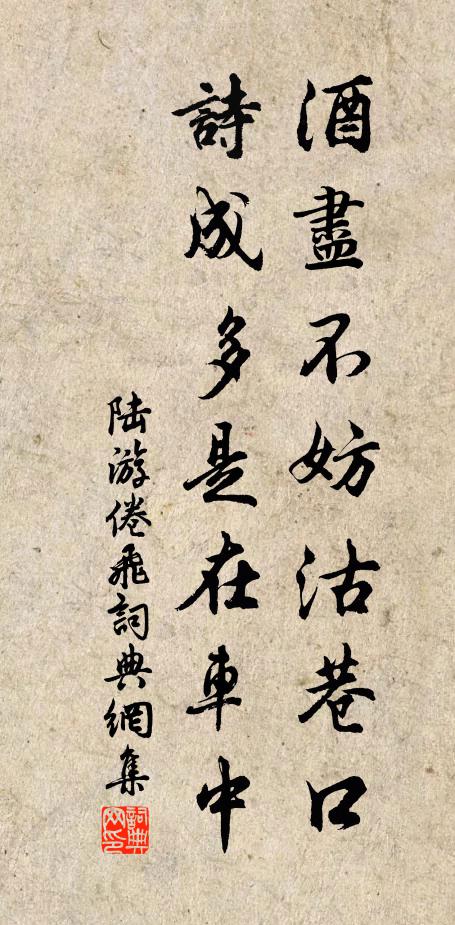 酒盡不妨沽巷口
詩成多是在車中
陆游倦飛詞典網集
詞典网印